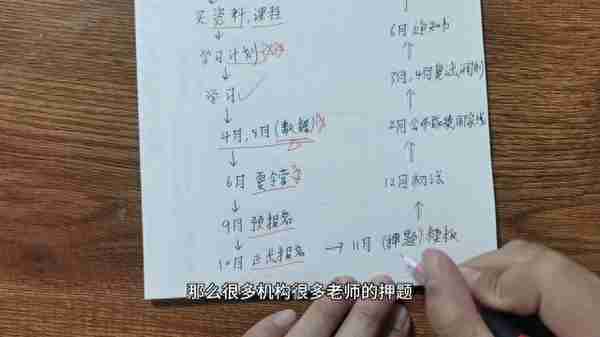 买资料，课程
↓
学习计划
↓
学习 ✓
↓
4月，5月（数据）
↓
6月 夏令营
↓
9月 预报名
↓
10月 正式报名 → 11月（押题）模板
↑
12月初试
↑
2月公布成绩国家线
↑
3月，4月复试，调剂
↑
6月通知书
那么很多机构很多老师的押题